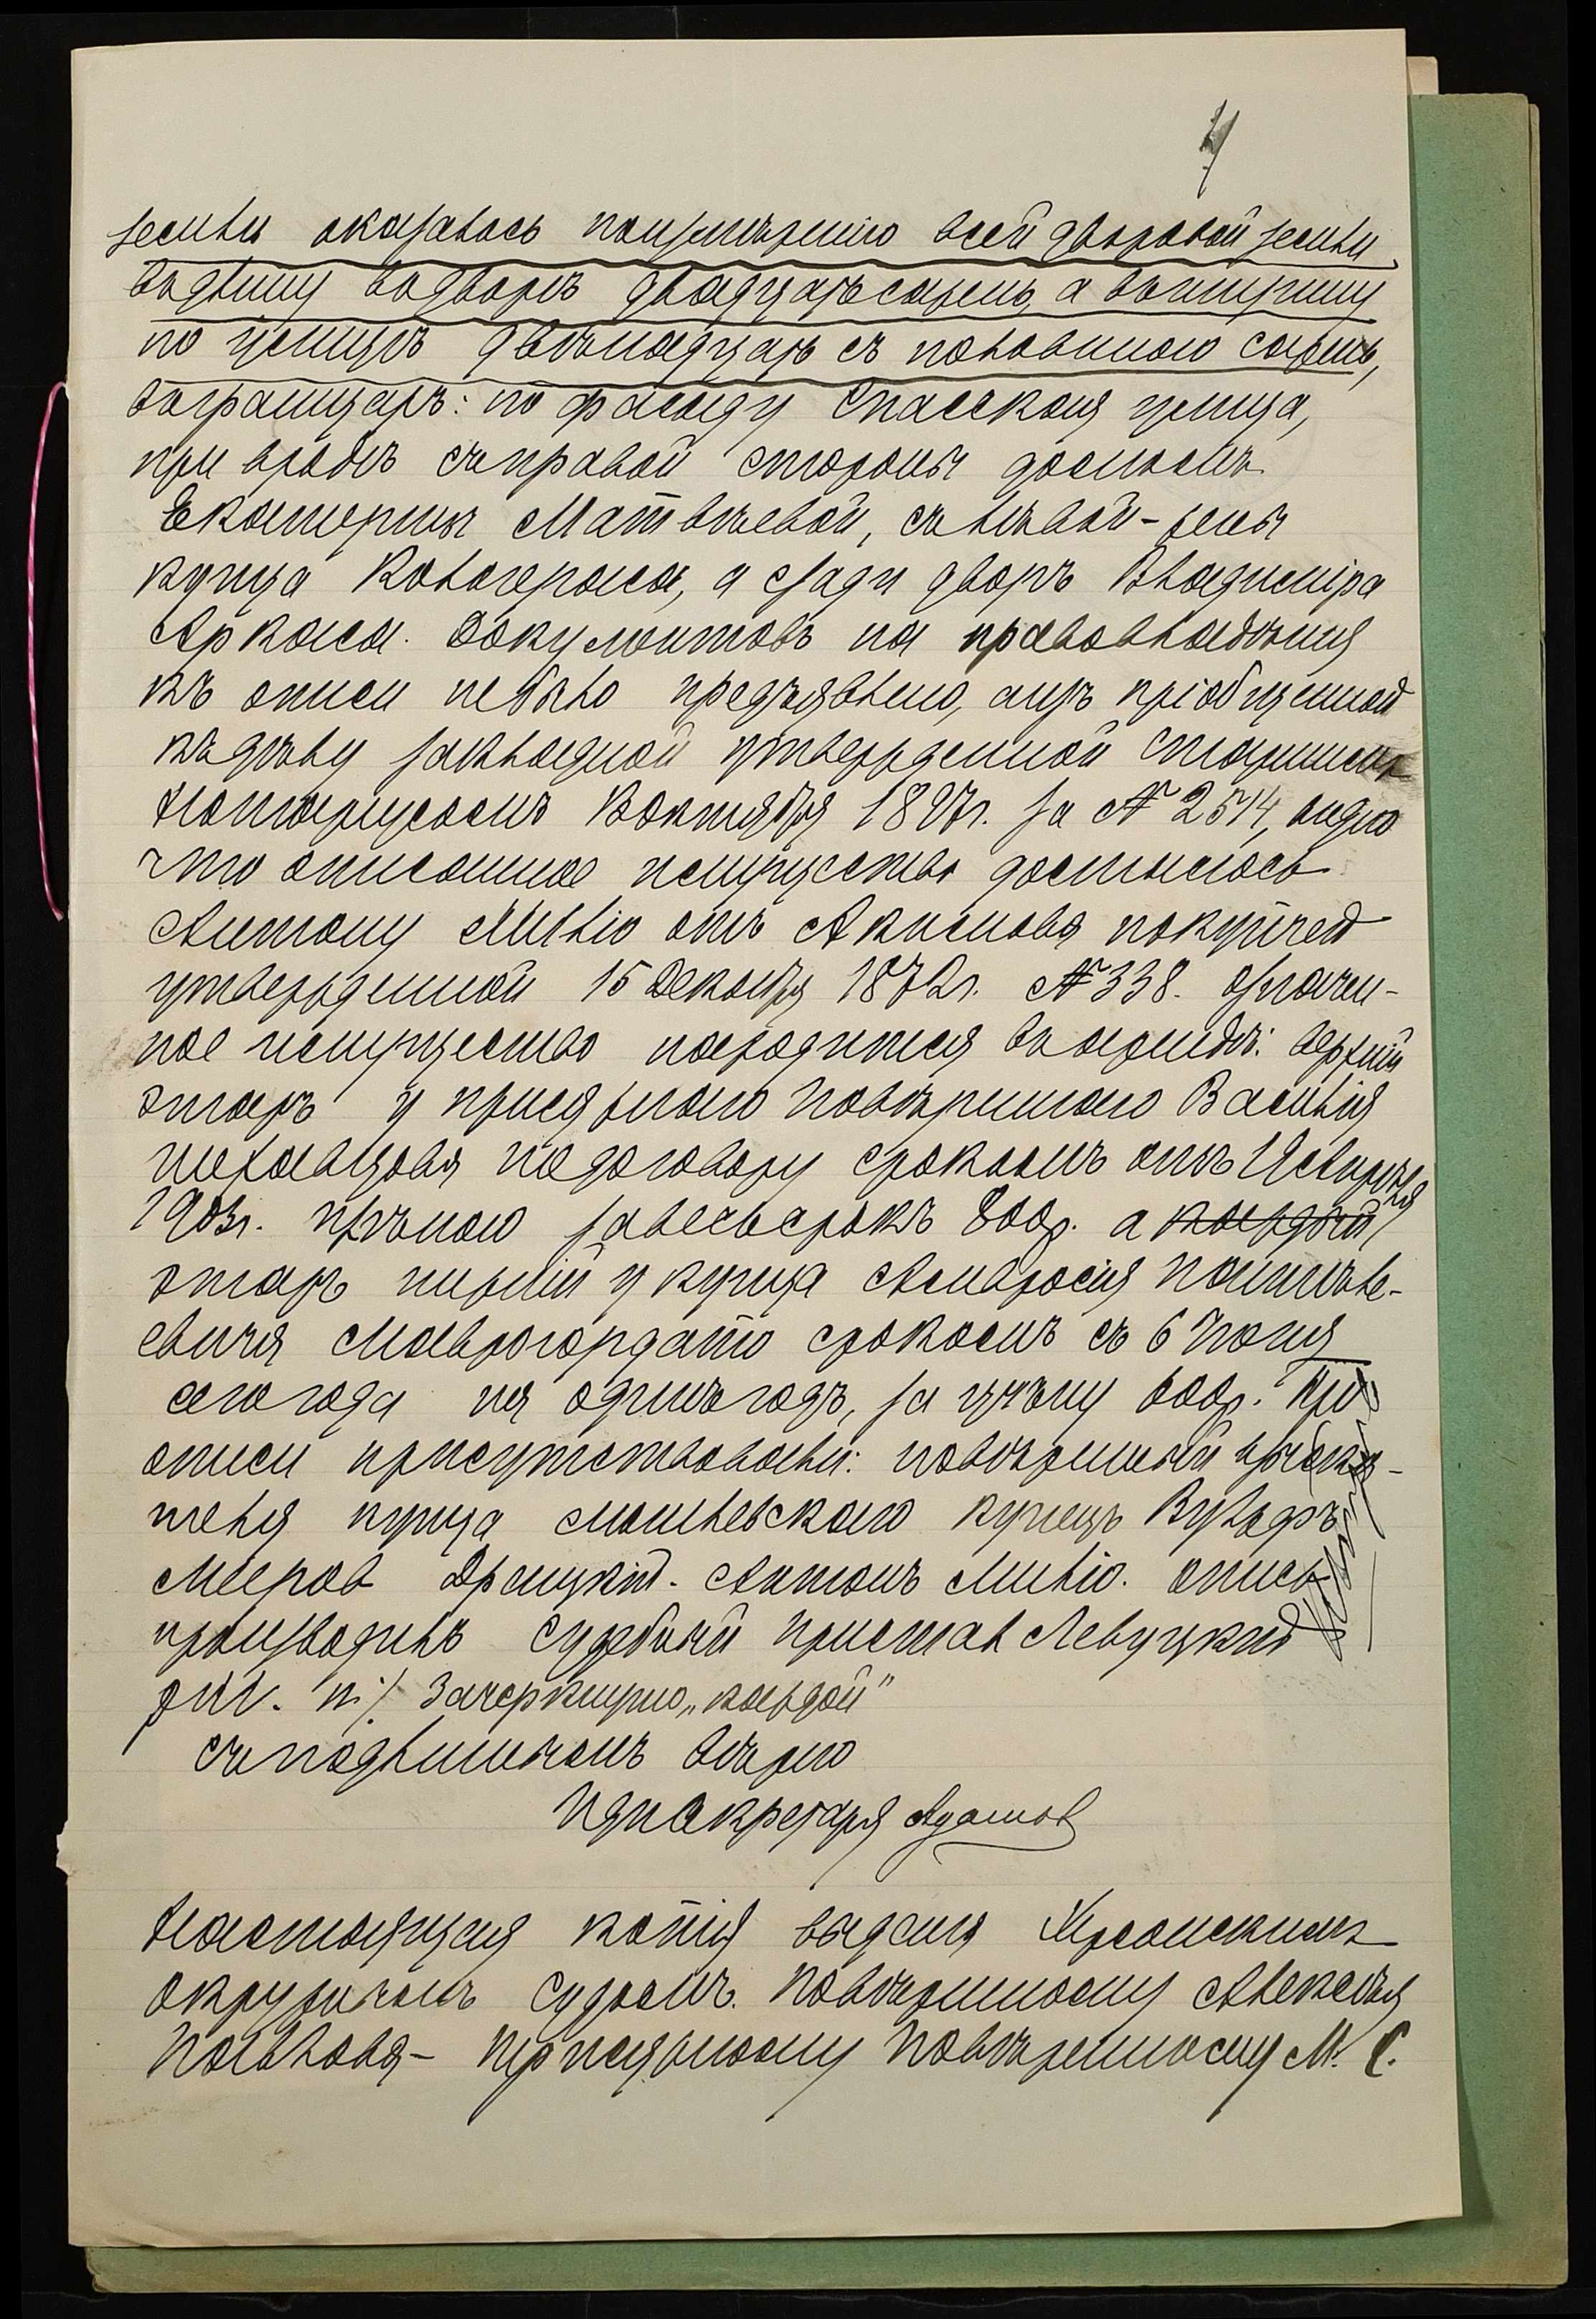 4
земли оказалось поизмѣренію всей дворовой земли
вдлину водворѣ двадцать сажень, а вширину
по улицѣ двѣнадцать съ половиною сажень,
вграницахъ: по фасаду Спасская улица,
при входѣ съправой стороны домомъ
Екатерины Матвѣевой, сълѣвой - жены
купца Коточераса, а сзади дворъ Владиміра
Аркаса. Документовъ на правовладѣнія
къ описи небыло предъявлено, аизъ пріобщенной
къдѣлу закладной утвержденной Старшимъ
Нотаріусомъ 3 октября 1897г. за № 2514, видно
что описанное имущество досталось
Антону Милліо отъ Акимова покупчей
утвержденной 15 Декабря 1872г. № 338. Означен-
ное имущество находится въарендѣ: верхній
этажъ у присяжного Повѣренного Василія
подоговору срокомъ отъ
1903г. цѣною завесьсрокъ 800р. а каждой,
этажъ нижній у купца Амвросія Пантелѣ-
евича Маврогордато срокомъ съ 6 Іюня
сего года на одинъ годъ, за цѣну 600р. При
описи присутствовали: повѣренный взыска-
теля купца Могилевского купецъ Вульфъ
Мееров Драицкій. Антонъ Милліо. опись
производилъ Судебный Пристав Левуцкий
Зачеркнуто „каждой"
съподлиннымъ вѣрно
И д п Секретаря Адамов
Настоящая копія выдана Херсонскимъ
Окружнымъ Судомъ. Повѣренному Алексѣя
Павлова - Присяжному Повѣренному М. С.